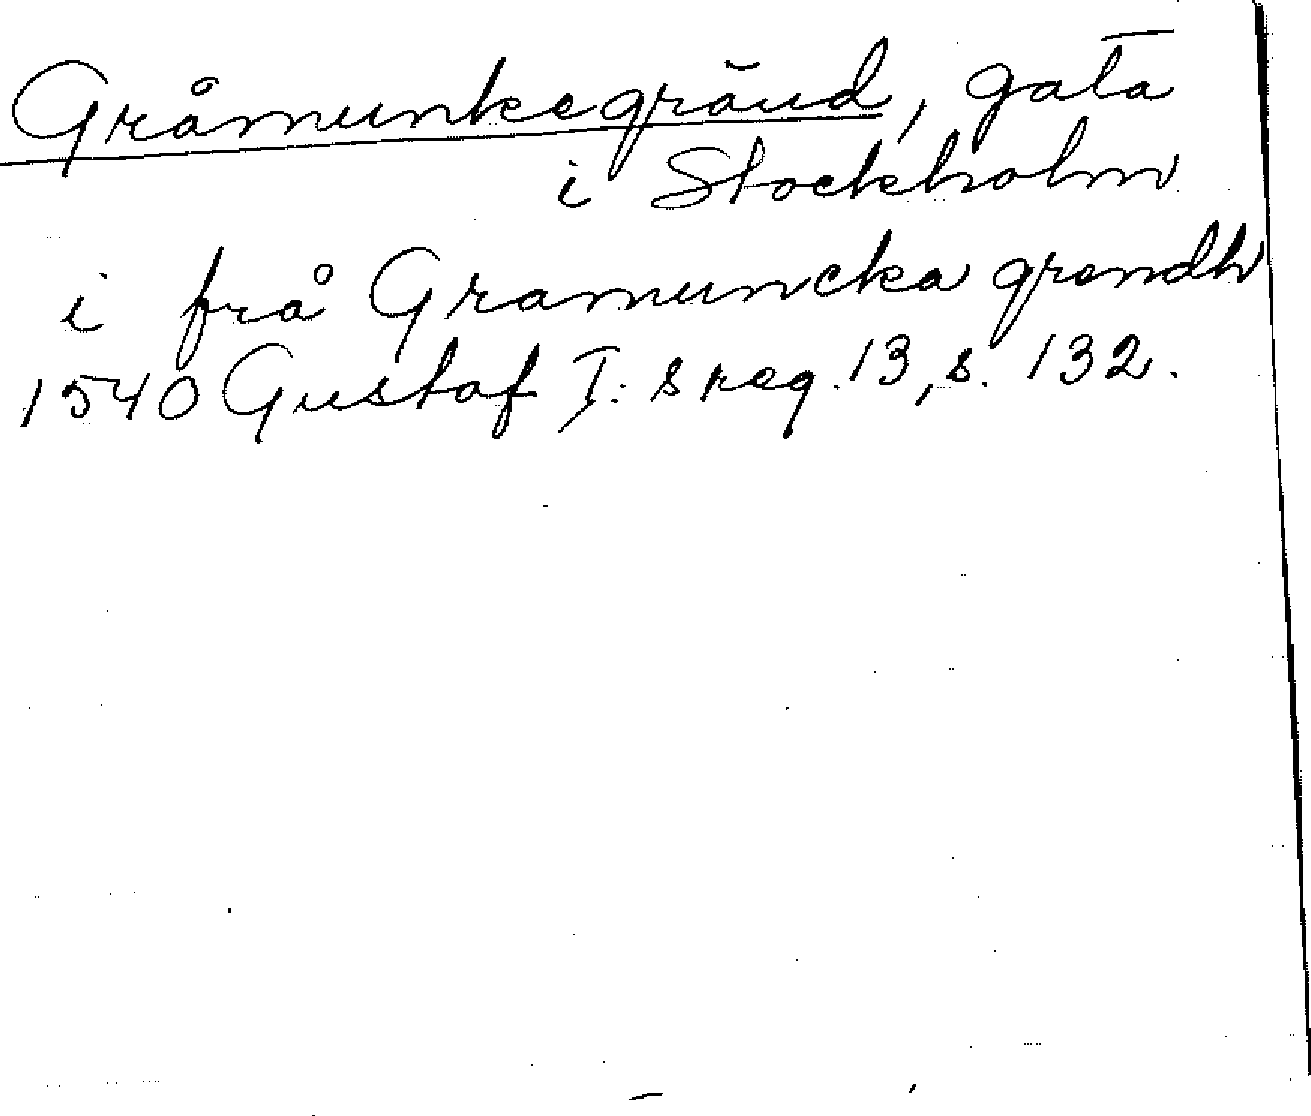 Gråmunkegränd, gata
i Stockholm
i frå Gramuncka grendh
1540 Gustaf I:s reg. 13, s. 132.